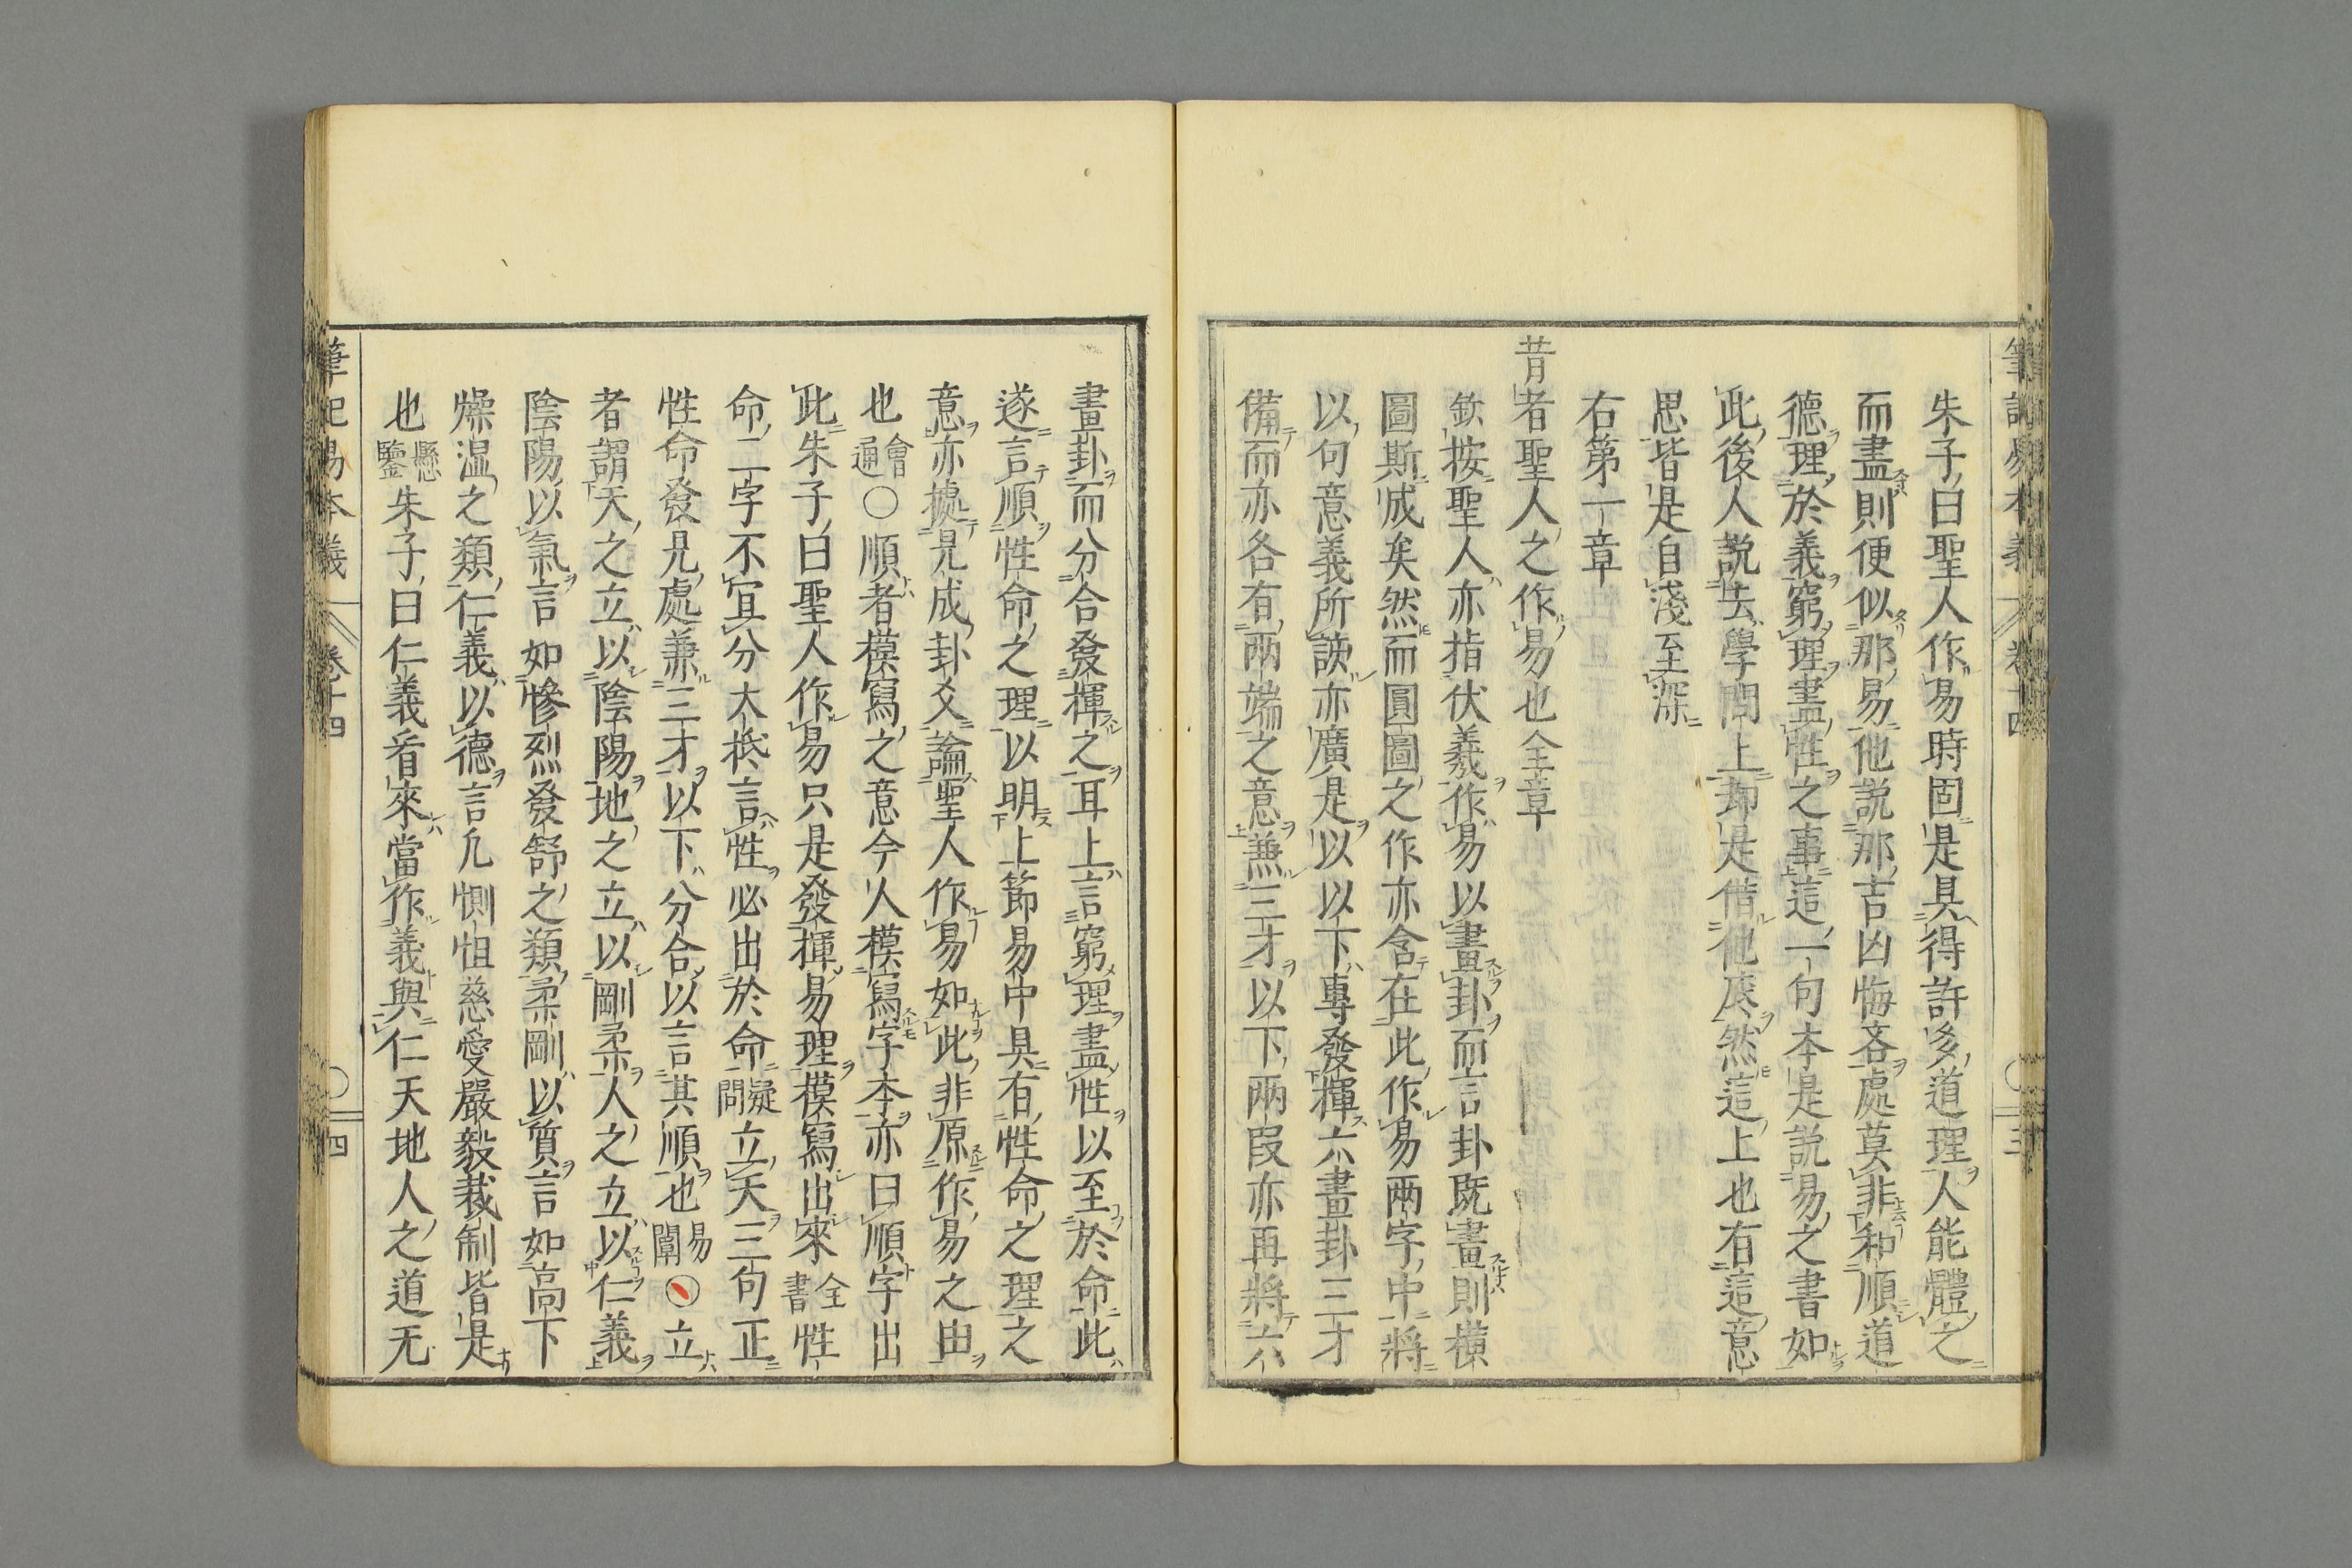 朱子曰聖人作易時固是具得許多道理人能體之
而盡則便似那易他説那吉凶悔吝處莫非和順道
德理於義窮理盡性之事這一句本是説易之書如
此後人説去學問上却是借他底然這上也有這意
思皆是自淺至深
右第一章
昔者聖人之作易也全章
欽按聖人亦指伏羲作易以畫卦而言卦既畫則横
圖斯成矣然而圓圖之作亦含在此作易兩字中將
以句意義所該亦廣是以以下專發揮六畫卦三才
備而亦各有兩端之意兼三才以下兩段亦再將六
畫卦而分合發揮之耳上言窮理盡性以至於命此
遂言順性命之理以明上節易中具有性命之理之
意亦據見成卦爻論聖人作易如此非原作易之由
也會通○順者模寫之意今人模寫字本亦曰順字出
此朱子曰聖人作易只是發揮易理模寫出來全書性
命二字不冝分大抵言性必出於命疑問立天三句正
性命發見處兼三才以下分合以言其順也易闡○立
者謂天之立以陰陽地之立以剛柔人之立以仁義
陰陽以氣言如慘烈發舒之類柔剛以質言如高下
燥温之類仁義以德言凡惻怛慈愛嚴毅裁制皆是
也懸鑒朱子曰仁義看來當作義與仁天地人之道无
筆記易本義 卷十四 四